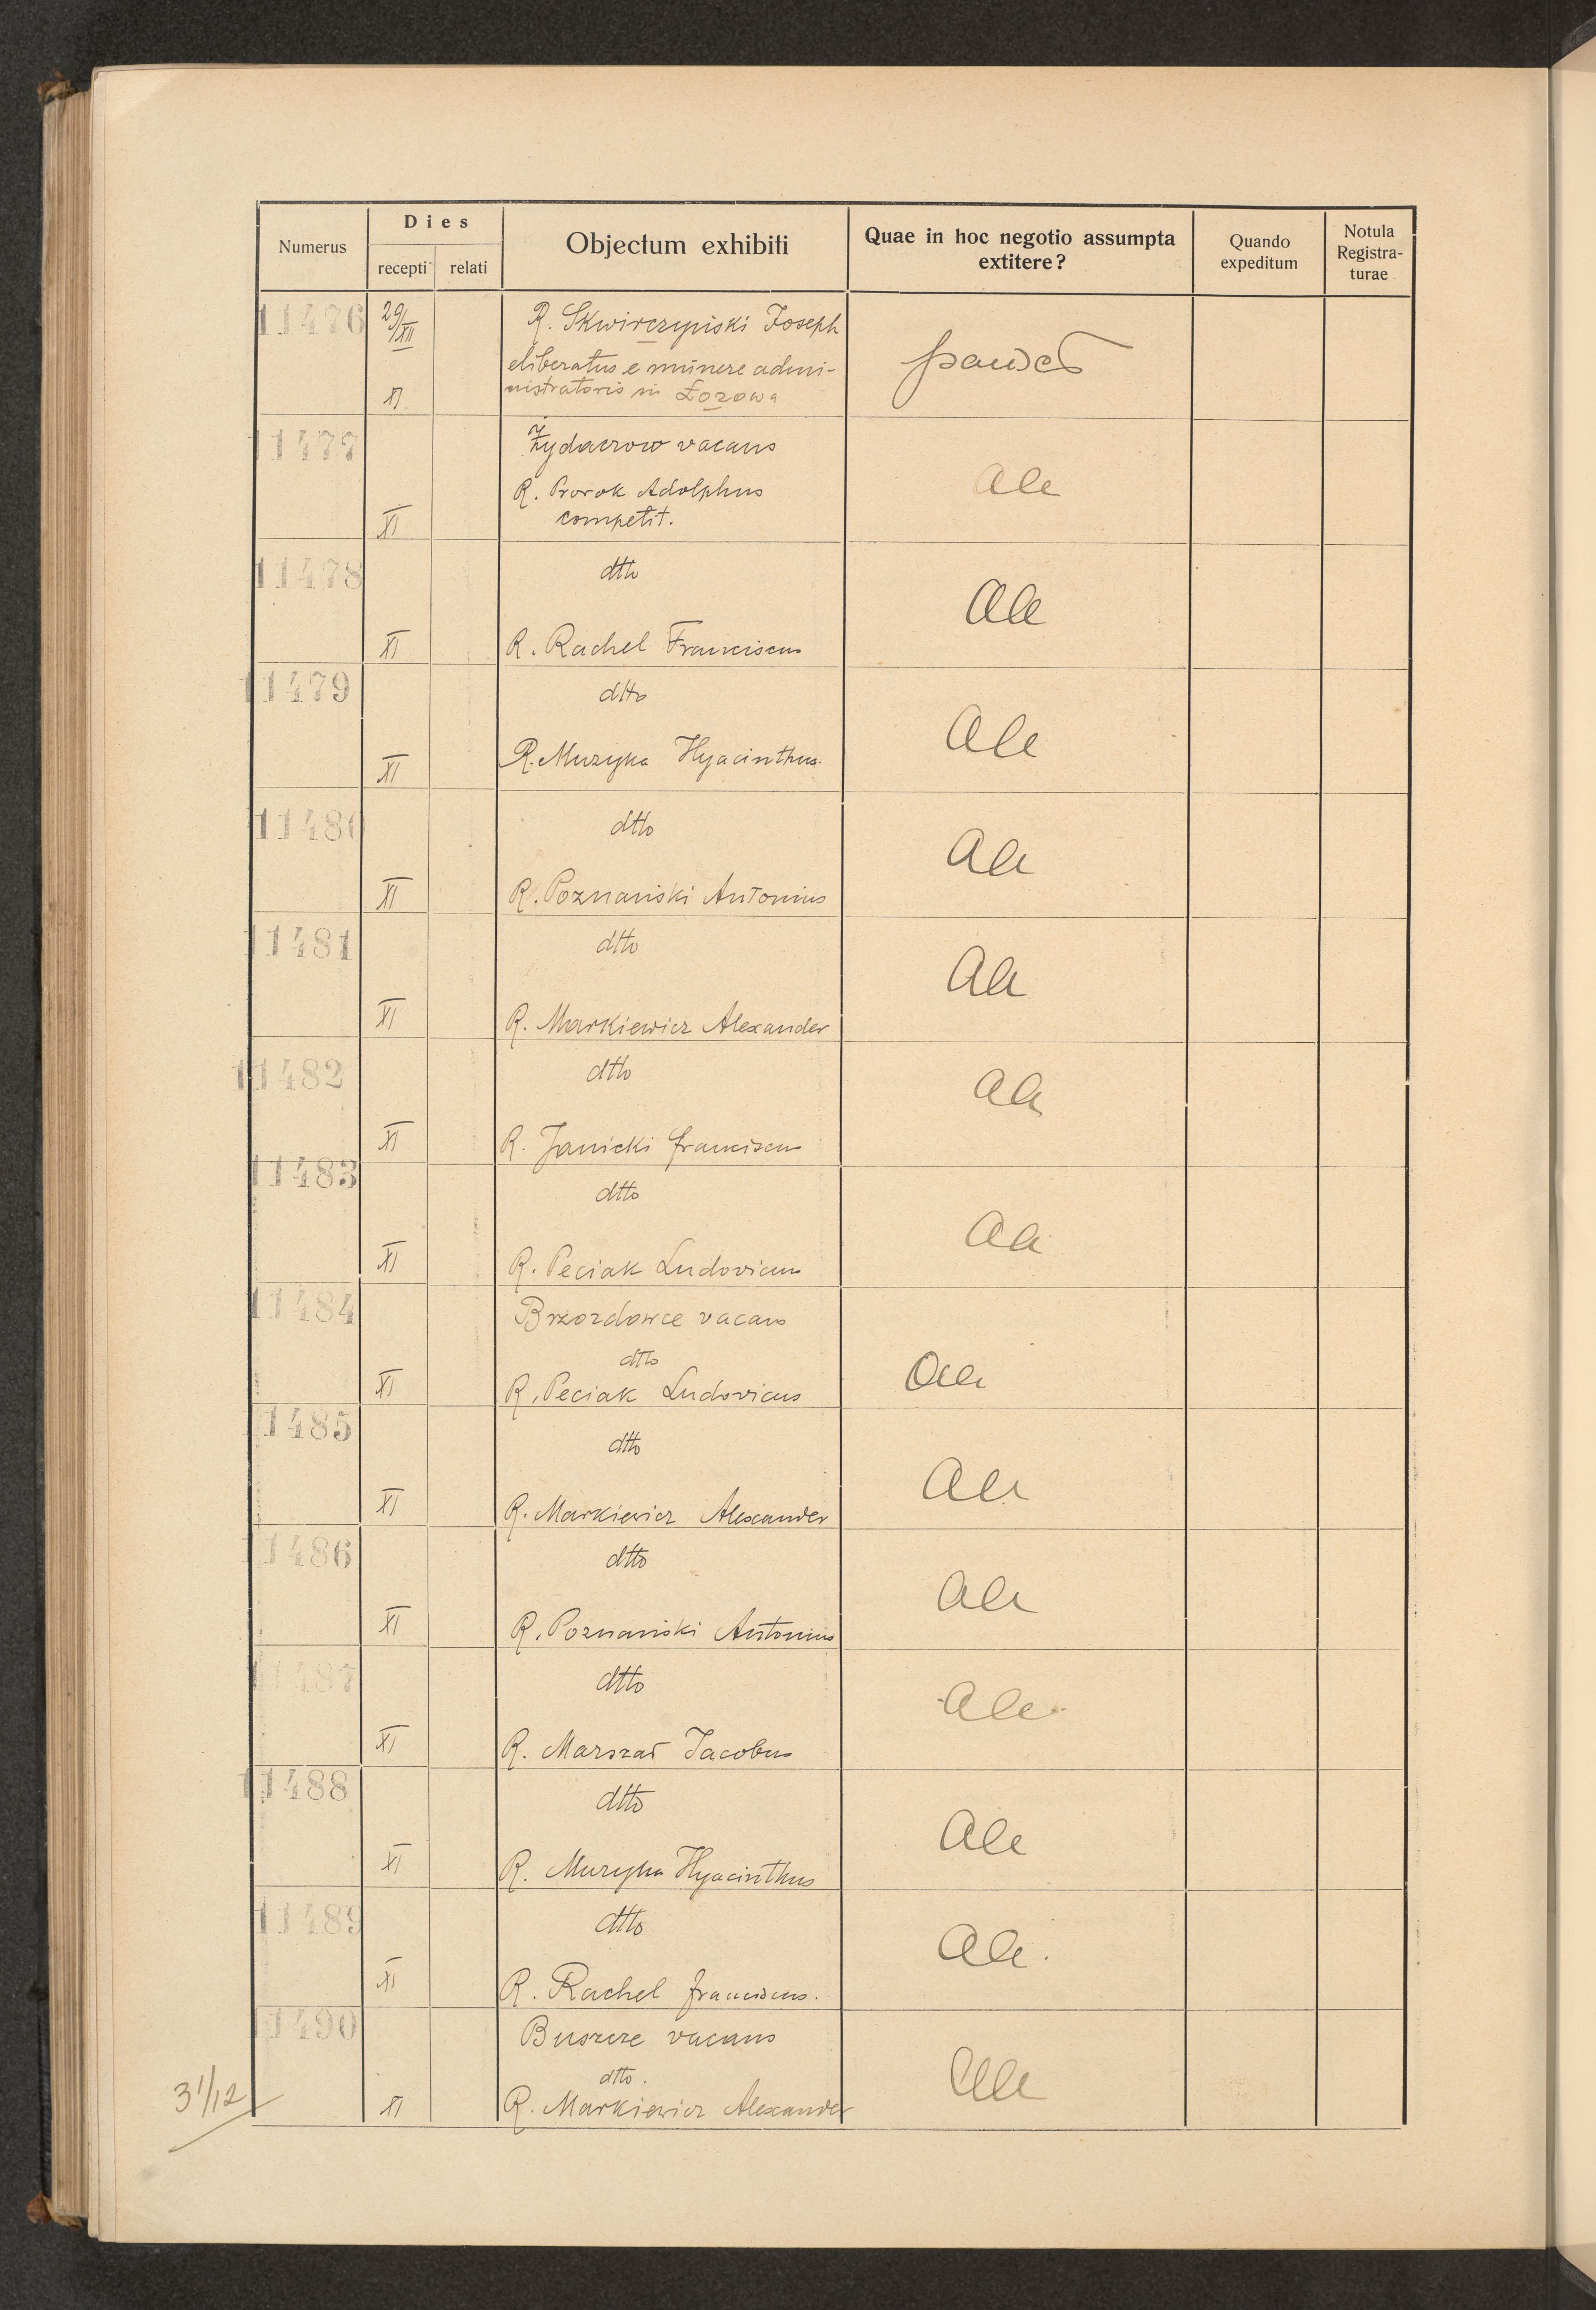 Numerus
Dies
recepti
relati
Objectum exhibiti
Quae in hoc negotio assumpta
extitere?
Quando
expeditum
Notula
Registra-
turae
11476
29/XII
R. Skwirczyński Joseph
eliberatus e munere admi-
nistratoris in Łozowa
XI
11477
Żydaczow vacans
R. Prorok Adolphus
competit.
XI
11478
dtto
R. Rachel Franciscus
XI
11479
dtto
R. Muzyka Hyacinthus.
XI
11480
dtto
R. Poznański Antonius
XI
11481
dtto
R. Markiewicz Alexander
XI
11482
dtto
R. Janicki Franciscus
XI
11483
dtto
R. Peciak Ludovicus
XI
11484
Brzozdowce vacans
dtto
R. Peciak Ludovicus
XI
11485
dtto
R. Markiewicz Alexander
XI
11486
dtto
R. Poznański Antonius
XI
11487
dtto
R. Marszał Jacobus
XI
11488
dtto
R. Muzyka Hyacinthus
XI
11489
dtto
R. Rachel Franciscus.
XI
11490
Buszcze vacans
dtto.
R. Markiewicz Alexander
XI
31/12